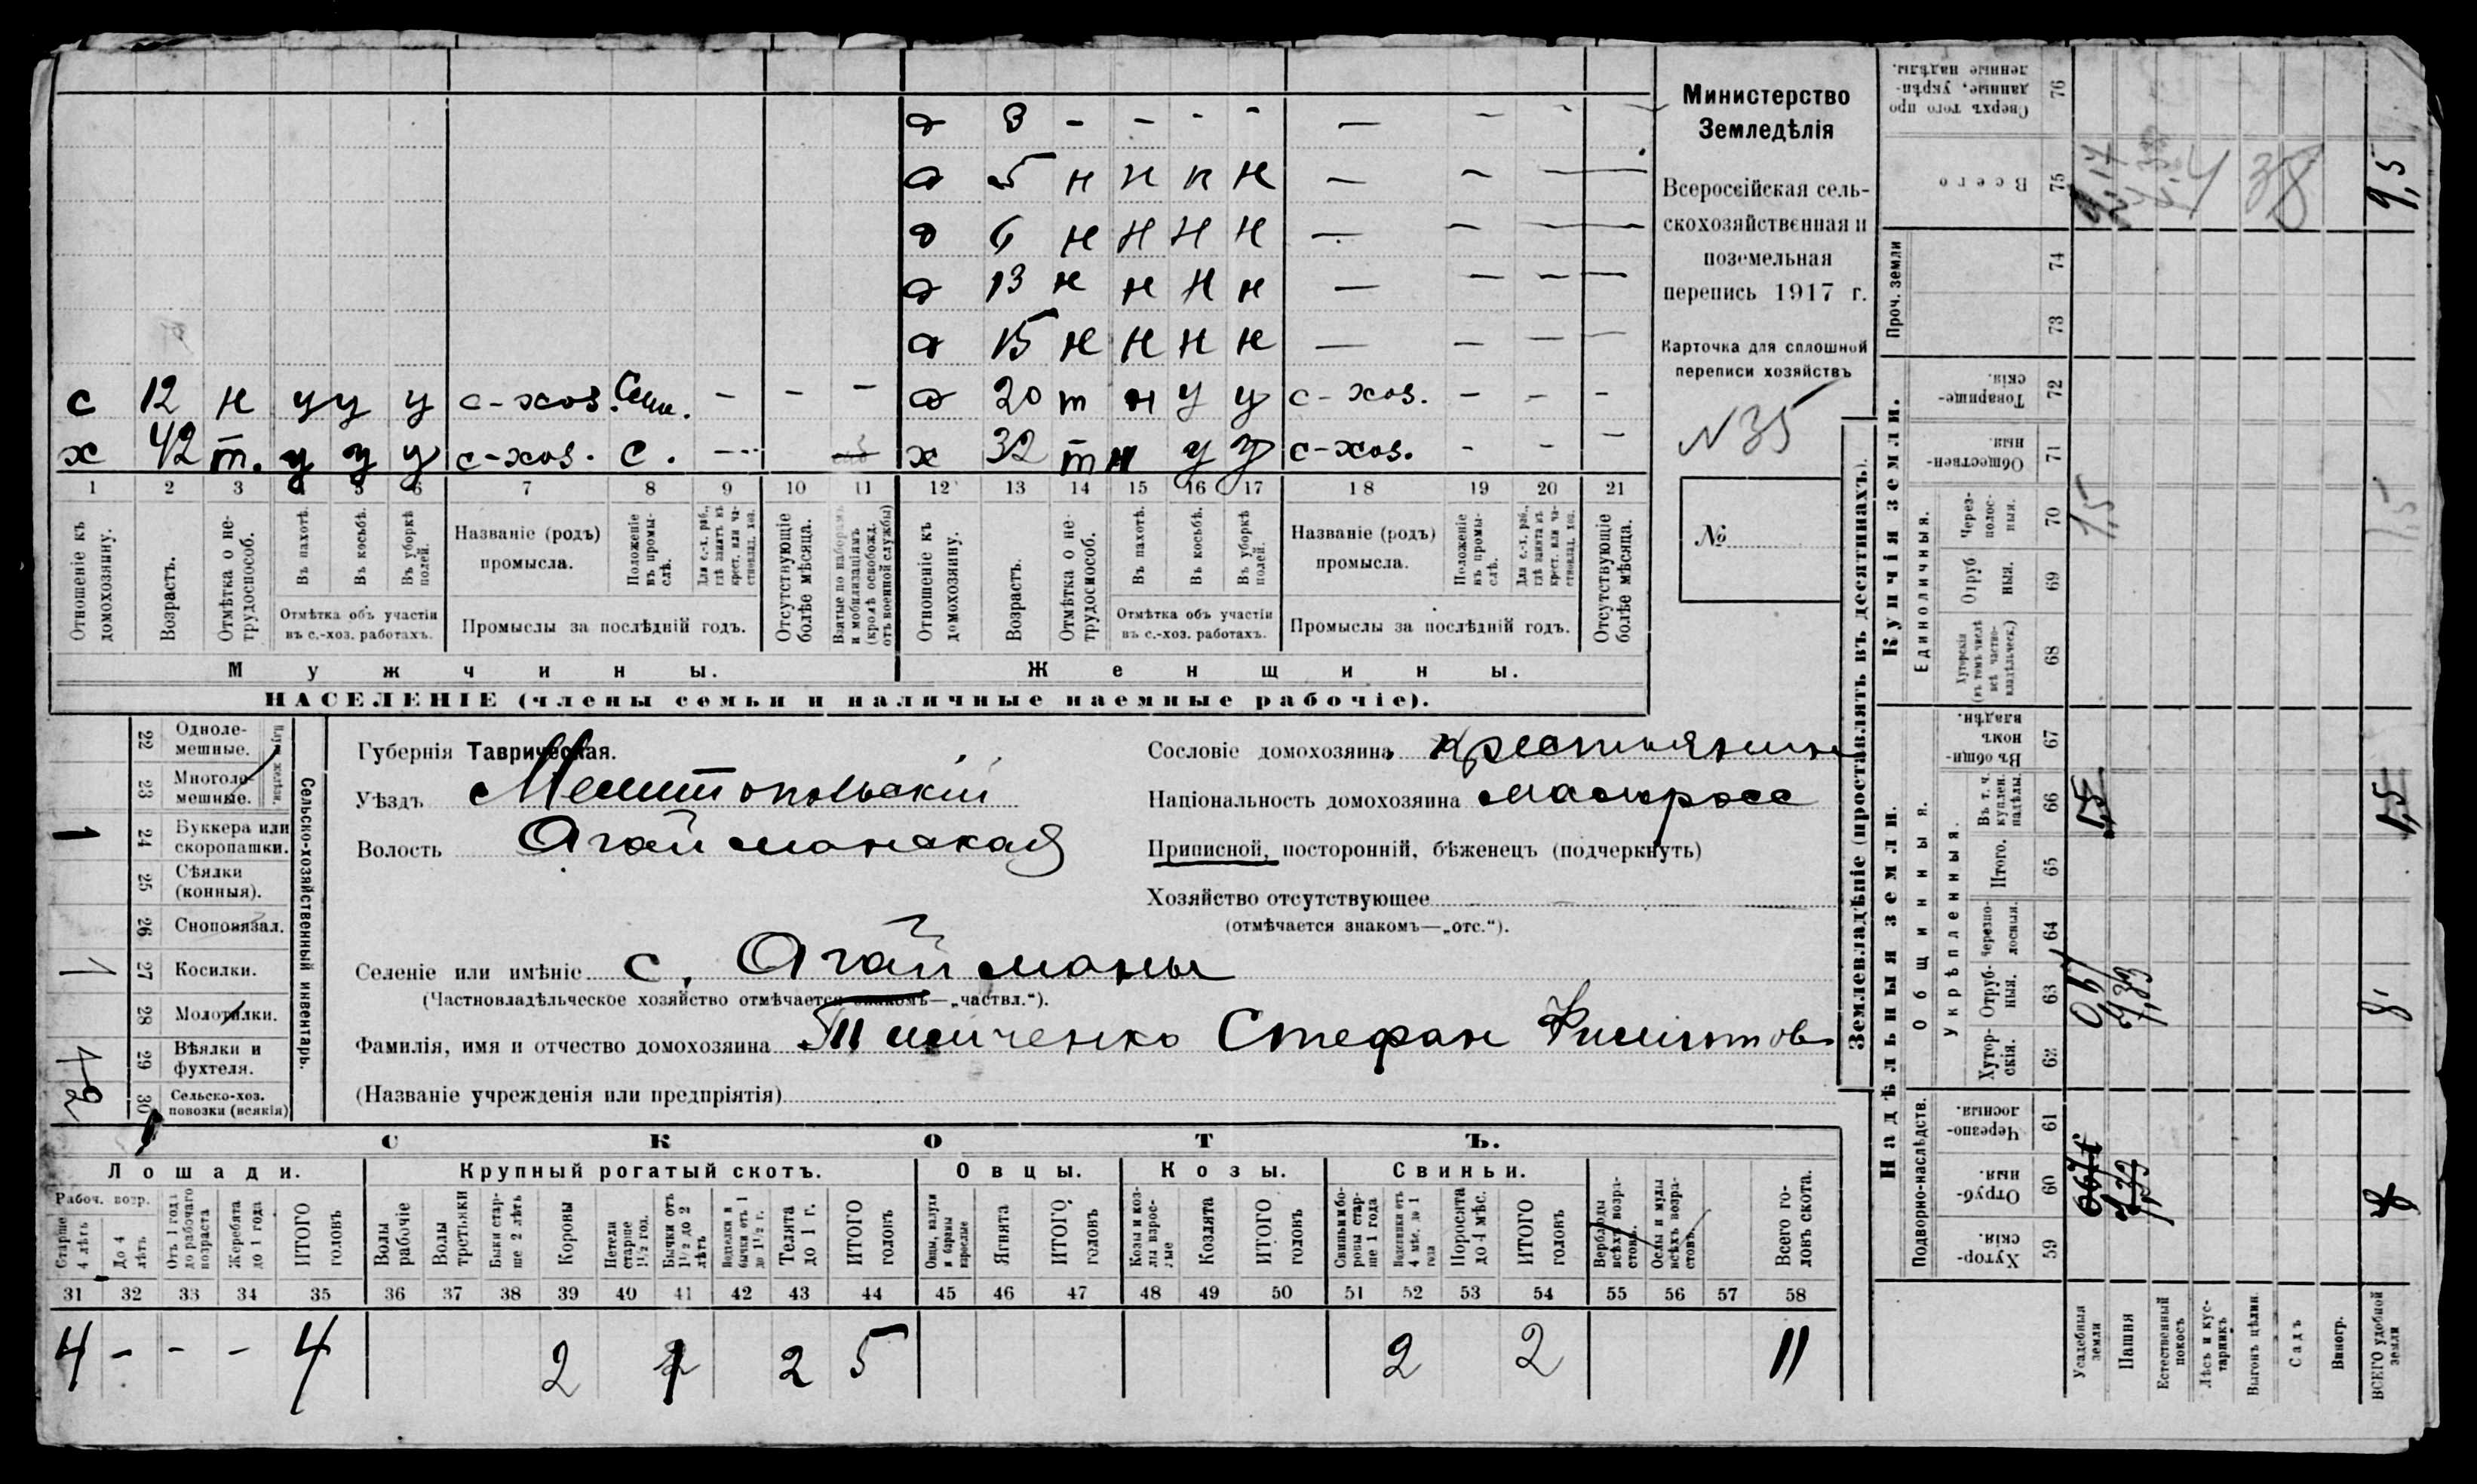 д 3 - - - - — - - -
д 5 н н н н — - — —
д 6 н н н н — - — —
д 13 н н н н — — — —
д 15 н н н н — - — —
с 12 н у у у с-хоз. Сем. - - - д 20 т н у у с-хоз. - - -
х 42 т. у у у с-хоз. с. - х 32 т н у у с-хоз. - - -
1 2 3 4 5 6 7 8 9 10 11 12 13 14 15 16 17 18 19 20 21
Отношеніе къ домохозяину.
Возрастъ.
Отмѣтка о не-трудоспособ.
Въ пахотѣ.
Въ косьбѣ.
Въ уборкѣ полей.
Отмѣтка объ участіи
въ с.-хоз. работахъ.
Названіе (родъ)
промысла.
Положеніе въ промы-слѣ.
Для с.-х. раб., гдѣ занятъ въ крест. или ча-стновлад. хоз.
Промыслы за послѣдній годъ.
Отсутствующіе болѣе мѣсяца.
Взятые по наборамъ и мобилизаціямъ (кромѣ освобожд. отъ военной службы)
Отношеніе къ домохозяину.
Возрастъ.
Отмѣтка о не-трудоспособ.
Въ пахотѣ.
Въ косьбѣ.
Въ уборкѣ полей.
Отмѣтка объ участіи
въ с.-хоз. работахъ.
Названіе (родъ)
промысла.
Положеніе въ промы-слѣ.
Для с.-х. раб., гдѣ занята въ крест. или ча-стновлад. хоз.
Промыслы за послѣдній годъ.
Отсутствующіе болѣе мѣсяца.
Мужчины. Женщины.
НАСЕЛЕНІЕ (члены семьи и наличные наемные рабочіе).
Министерство
Земледѣлія
Всероссійская сель-
скохозяйственная и
поземельная
перепись 1917 г.
Карточка для сплошной
переписи хозяйствъ
N 35
№
22 Одноле-мешные.
23 Многоле-мешные.
Плуги желѣзн.
1 24 Буккера или скоропашки.
25 Сѣялки (конныя).
26 Сноповязал.
1 27 Косилки.
28 Молотилки.
29 Вѣялки и фухтеля.
2 30 Сельско-хоз. повозки (всякія)
Сельско-хозяйственный инвентарь.
Губернія Таврическая.
Уѣздъ Мелитопольскій
Волость Агайманская
Сословіе домохозяина крестьянин
Національность домохозяина малоросс
Приписной, посторонній, бѣженецъ (подчеркнуть)
Хозяйство отсутствующее
(отмѣчается знакомъ—„отс.“).
Селеніе или имѣніе с. Агайманы
(Частновладѣльческое хозяйство отмѣчается знакомъ—„частвл.“).
Фамилія, имя и отчество домохозяина Тимченко Стефан Филиппов
(Названіе учрежденія или предпріятія)
СКОТЪ.
Лошади. Крупный рогатый скотъ. Овцы. Козы. Свиньи.
Рабоч. возр.
Старше 4 лѣтъ
До 4 лѣтъ
Отъ 1 года до рабочаго возраста
Жеребята до 1 года
ИТОГО головъ
Волы рабочіе
Волы третьяки
Быки стар-ше 2 лѣтъ
Коровы
Нетели старше 1½ год.
Бычки отъ 1½ до 2 лѣтъ
Подтелки и бычки отъ 1 до 1½ г.
Телята до 1 г.
ИТОГО головъ
Овцы, валухи и бараны взрослые
Ягнята
ИТОГО головъ
Козы и коз-лы взрос-лые
Козлята
ИТОГО головъ
Свиньи и бо-ровы стар-ше 1 года
Подсвинки отъ 4 мѣс. до 1 года
Поросята до 4 мѣс.
ИТОГО головъ
Верблюды всѣхъ возра-стовъ.
Ослы и мулы всѣхъ возра-стовъ.
Всего го-ловъ скота.
31 32 33 34 35 36 37 38 39 40 41 42 43 44 45 46 47 48 49 50 51 52 53 54 55 56 57 58
4 - - - 4 2 1 2 5 2 2 11
Землевладѣніе (проставлять въ десятинахъ).
Купчія земли.
Надѣльныя земли.
Сверхъ того про-данные, укрѣп-ленные надѣлы. 76
Всего 75 4 38 9,5
Проч. земли 74
73
Товарище-скія. 72
Обществен-ныя. 71
Единоличныя.
Через-полос-ныя. 70 1,5 1,5
Отруб-ныя. 69
Хуторскія (въ томъ числѣ всѣ частно-владѣльческ.) 68
Общинныя.
Въ общин-номъ владѣн. 67
Въ т. ч. куплен. надѣлы. 66 1,5 1,5
Укрѣпленныя.
Итого. 65
Черезпо-лосныя. 64
Отруб-ныя. 63 7,33 8
Хутор-скія. 62
Подворно-наслѣдств.
Черезпо-лосныя. 61
Отруб-ныя. 60 7,33
Хутор-скія. 59
Усадебныя земли
Пашня
Естественный покосъ
Лѣсъ и кус-тарникъ
Выгонъ цѣлин.
Садъ
Виногр.
ВСЕГО удобной земли